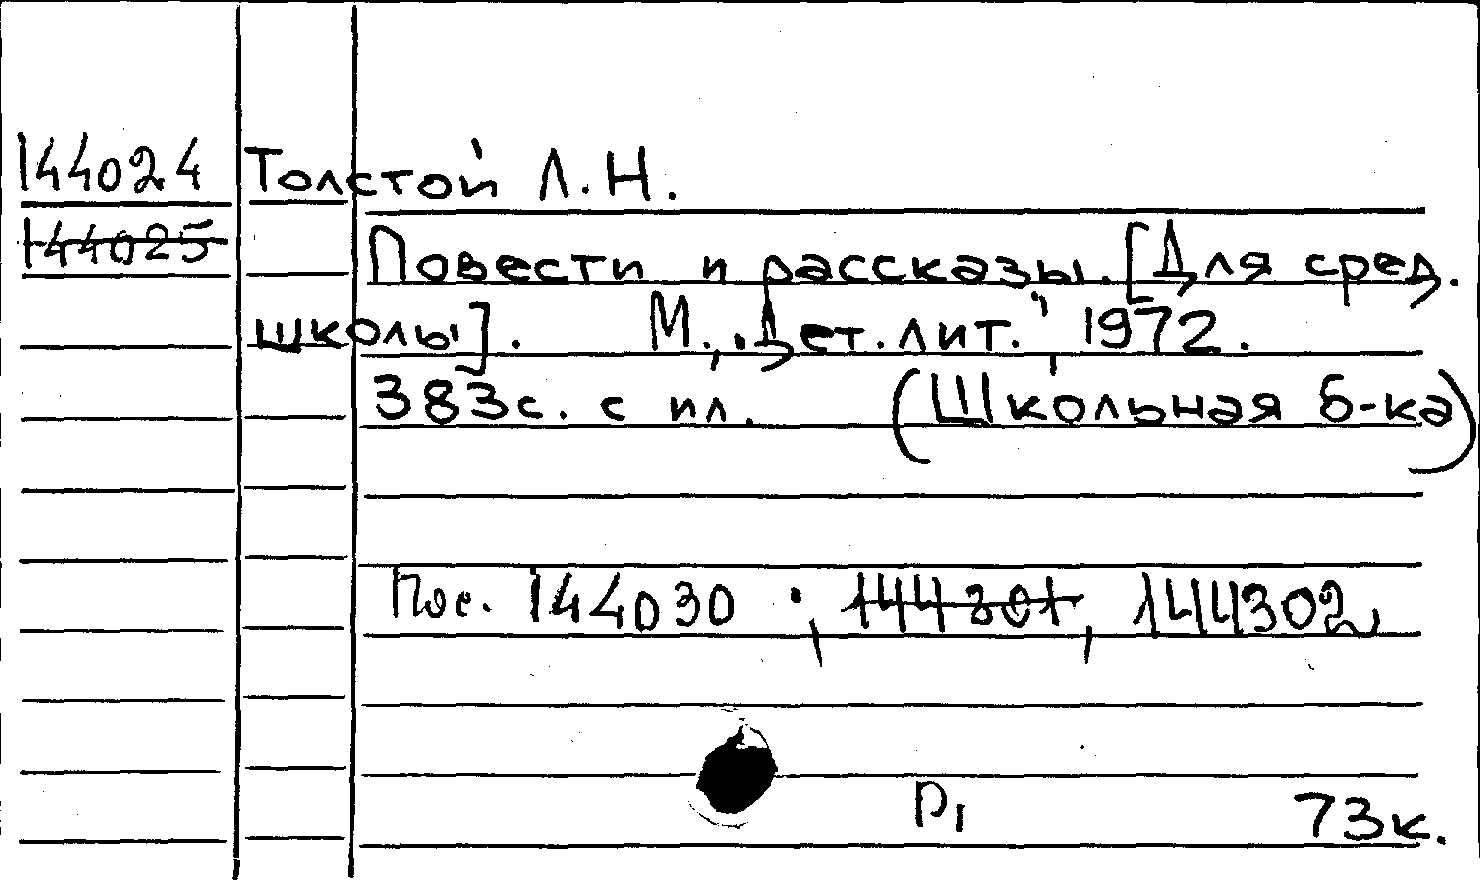 144024 Толстой Л.Н.
144025 Повести и рассказы. [Для сред.
школы]. М., „Дет. лит.", 1972.
383с. с ил. (Школьная б-ка)
Пос. 144030 ; 144301, 144302
Р1 73к.